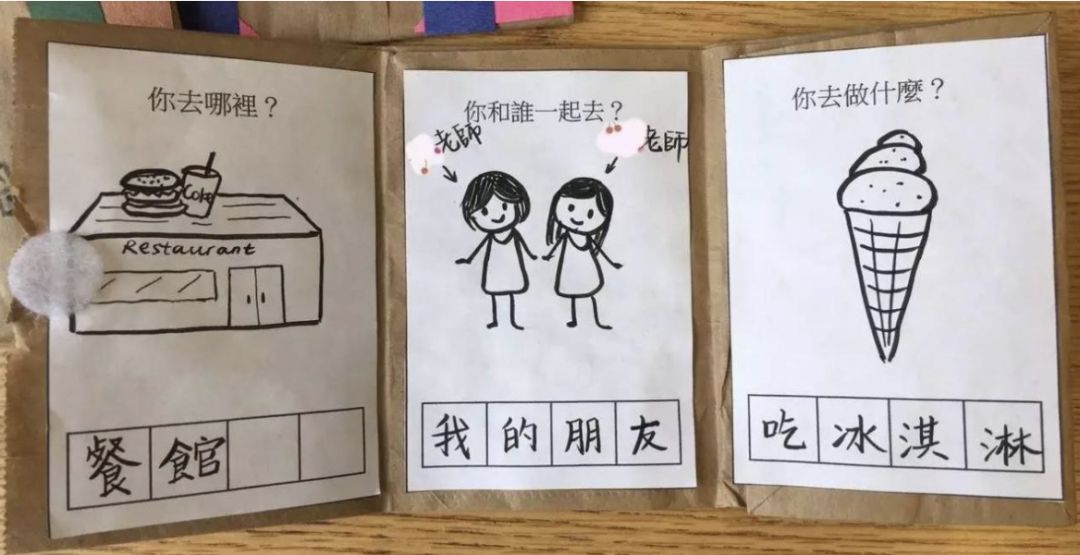 你去哪裡？
Coke
Restaurant
餐館
你和誰一起去？
老師
老師
我的朋友
你去做什麼？
吃冰淇淋